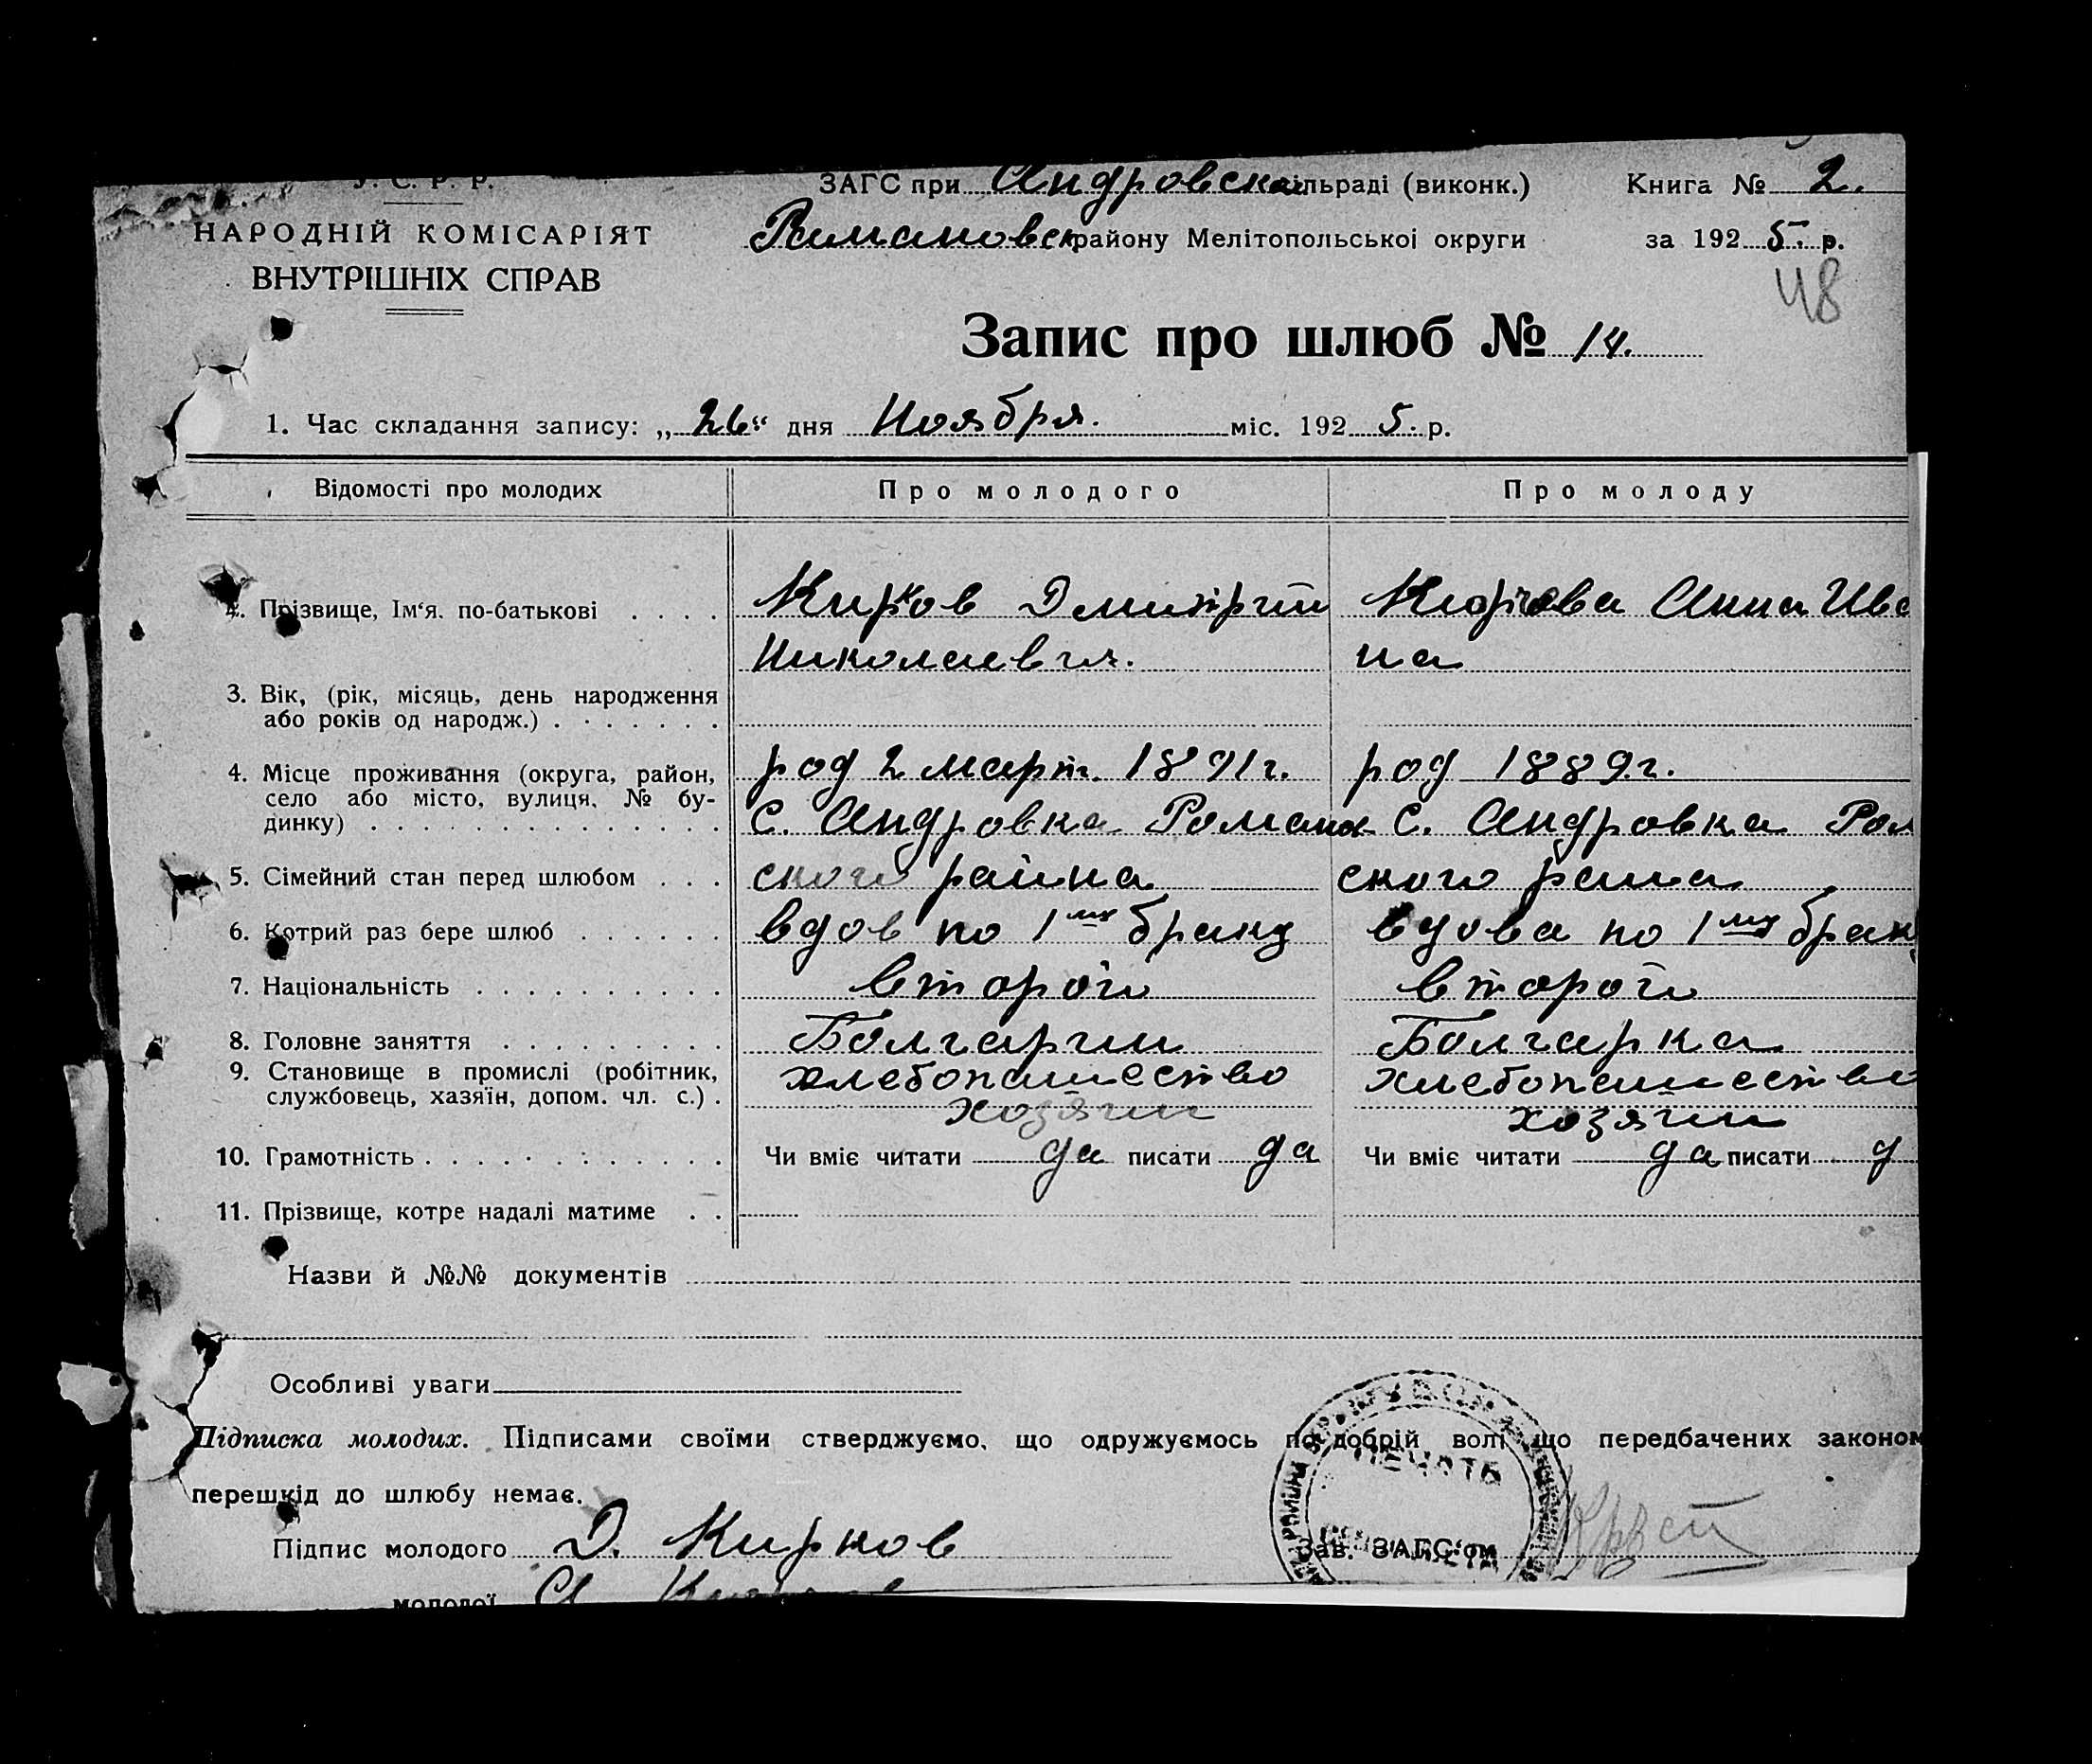 У. С. Р. Р.
НАРОДНІЙ КОМІСАРІЯТ
ВНУТРІШНІХ СПРАВ
ЗАГС при Андровской сільраді (виконк.)
Романовск району Мелітопольської округи
Книга № 2.
за 1925. р.
48
Запис про шлюб № 14.
1. Час складання запису: „26“ дня Ноября. міс. 1925. р.
Відомості про молодих Про молодого Про молоду
2. Прізвище, Ім‘я. по-батькові . . . . Кирков Дмитрий Анна Ива
Николаевич. на
3. Вік, (рік, місяць, день народження
або років од народж.) . . . . . . .
4. Місце проживання (округа, район, род 2 март. 1891г. род 1889.г.
село або місто, вулиця, № бу-
динку) . . . . . . . . . . . . . . С. Андровка Романов С. Андровка Ром
5. Сімейний стан перед шлюбом . . . ского раина ского раиа
6. Котрий раз бере шлюб . . . . . . вдов по 1му браку вдова по 1му браку
7. Національність . . . . . . . . . . второй второй
8. Головне заняття . . . . . . . . . Болгарин Болгарка
9. Становище в промислі (робітник, хлебопашество хлебопашество
службовець, хазяїн, допом. чл. с.) . хозяин хозяин
10. Грамотність . . . . . . . . . . . . Чи вміє читати да писати да Чи вміє читати да писати д
11. Прізвище, котре надалі матиме . .
Назви й №№ документів
Особливі уваги
Підписка молодих. Підписами своїми стверджуємо, що одружуємось по добрій волі що передбачених законом
перешкід до шлюбу немає.
Підпис молодого Д. Кирков Зав. ЗАГС‘ом
молодої А.
ПЕЧАТЬ